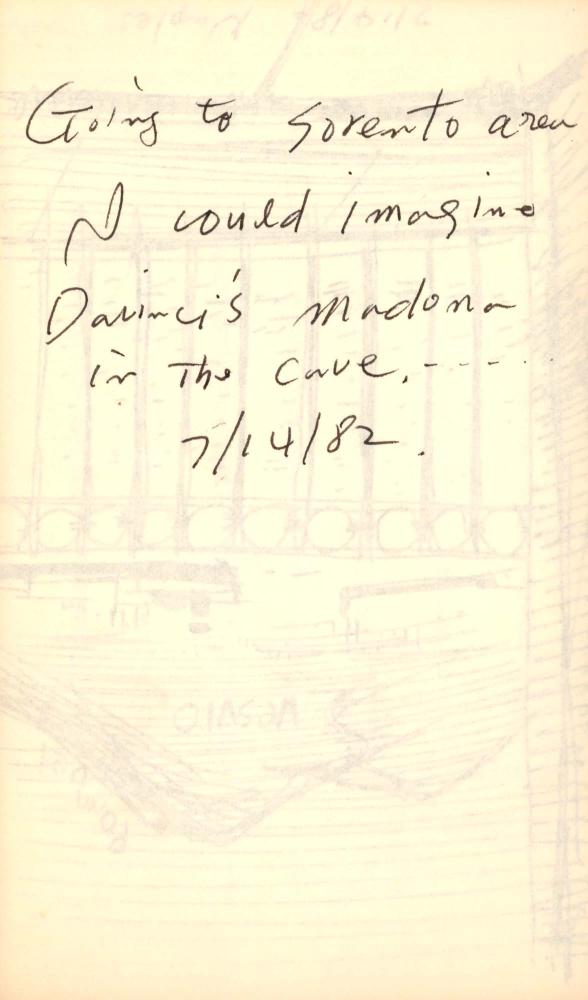 Going to Sorento area
I could imagine
Davinci's madona
in the cave.----
7/14/82.